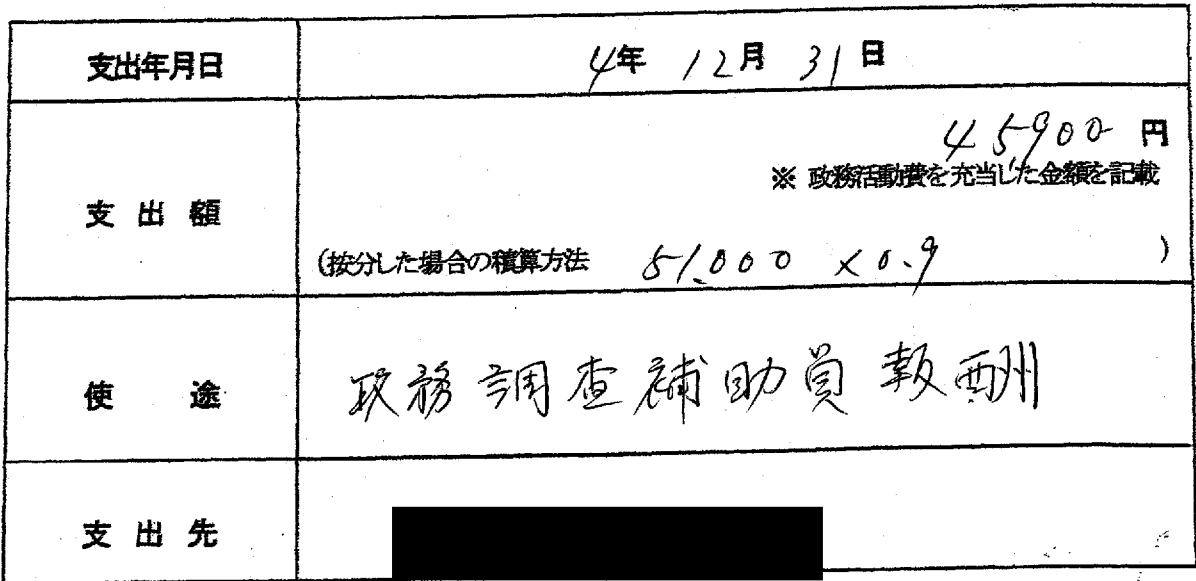 支出年月日 4年 12月 31日
45,900 円
※ 政務活動費を充当した金額を記載
支出額
(按分した場合の積算方法 51,000 × 0.9 )
使途 政務調査補助員報酬
支出先